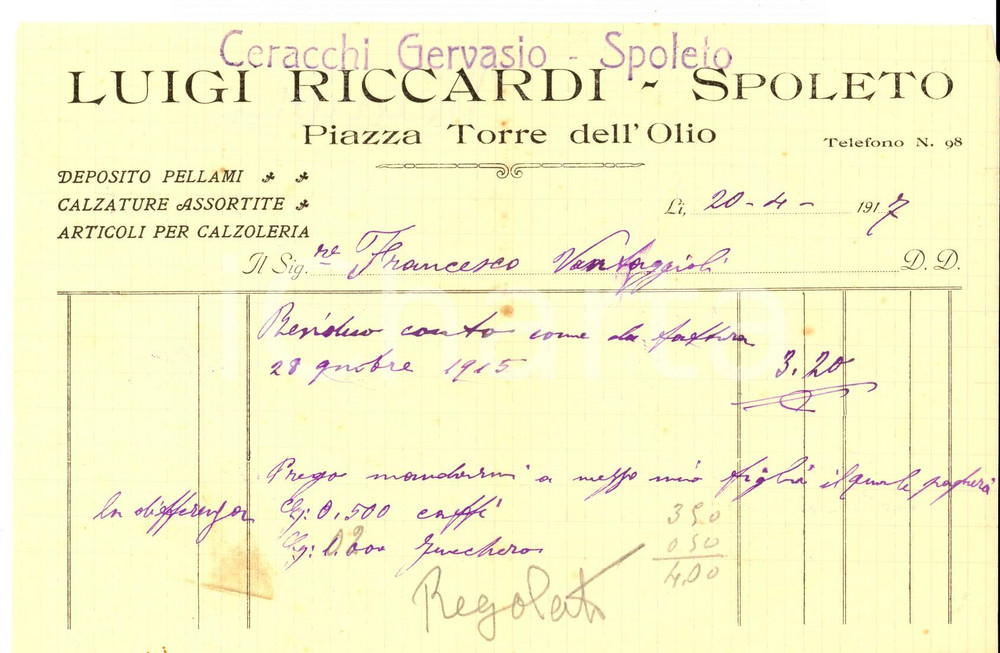 Ceracchi Gervasio - Spoleto
LUIGI RICCARDI - SPOLETO
Piazza Torre dell'Olio
Telefono N. 98
DEPOSITO PELLAMI
CALZATURE ASSORTITE
ARTICOLI PER CALZOLERIA
Li, 20-4- 1917
Il Sig.re Francesco Vantaggioli D. D.
Residuo conto come da fattura
28 9mbre 1915 3.20
Prego mandarmi a mezzo mio figlio il quale pagherà
la differenza Cg: 0,500 caffè
Cg: Zucchero
350
050
400
Regolato